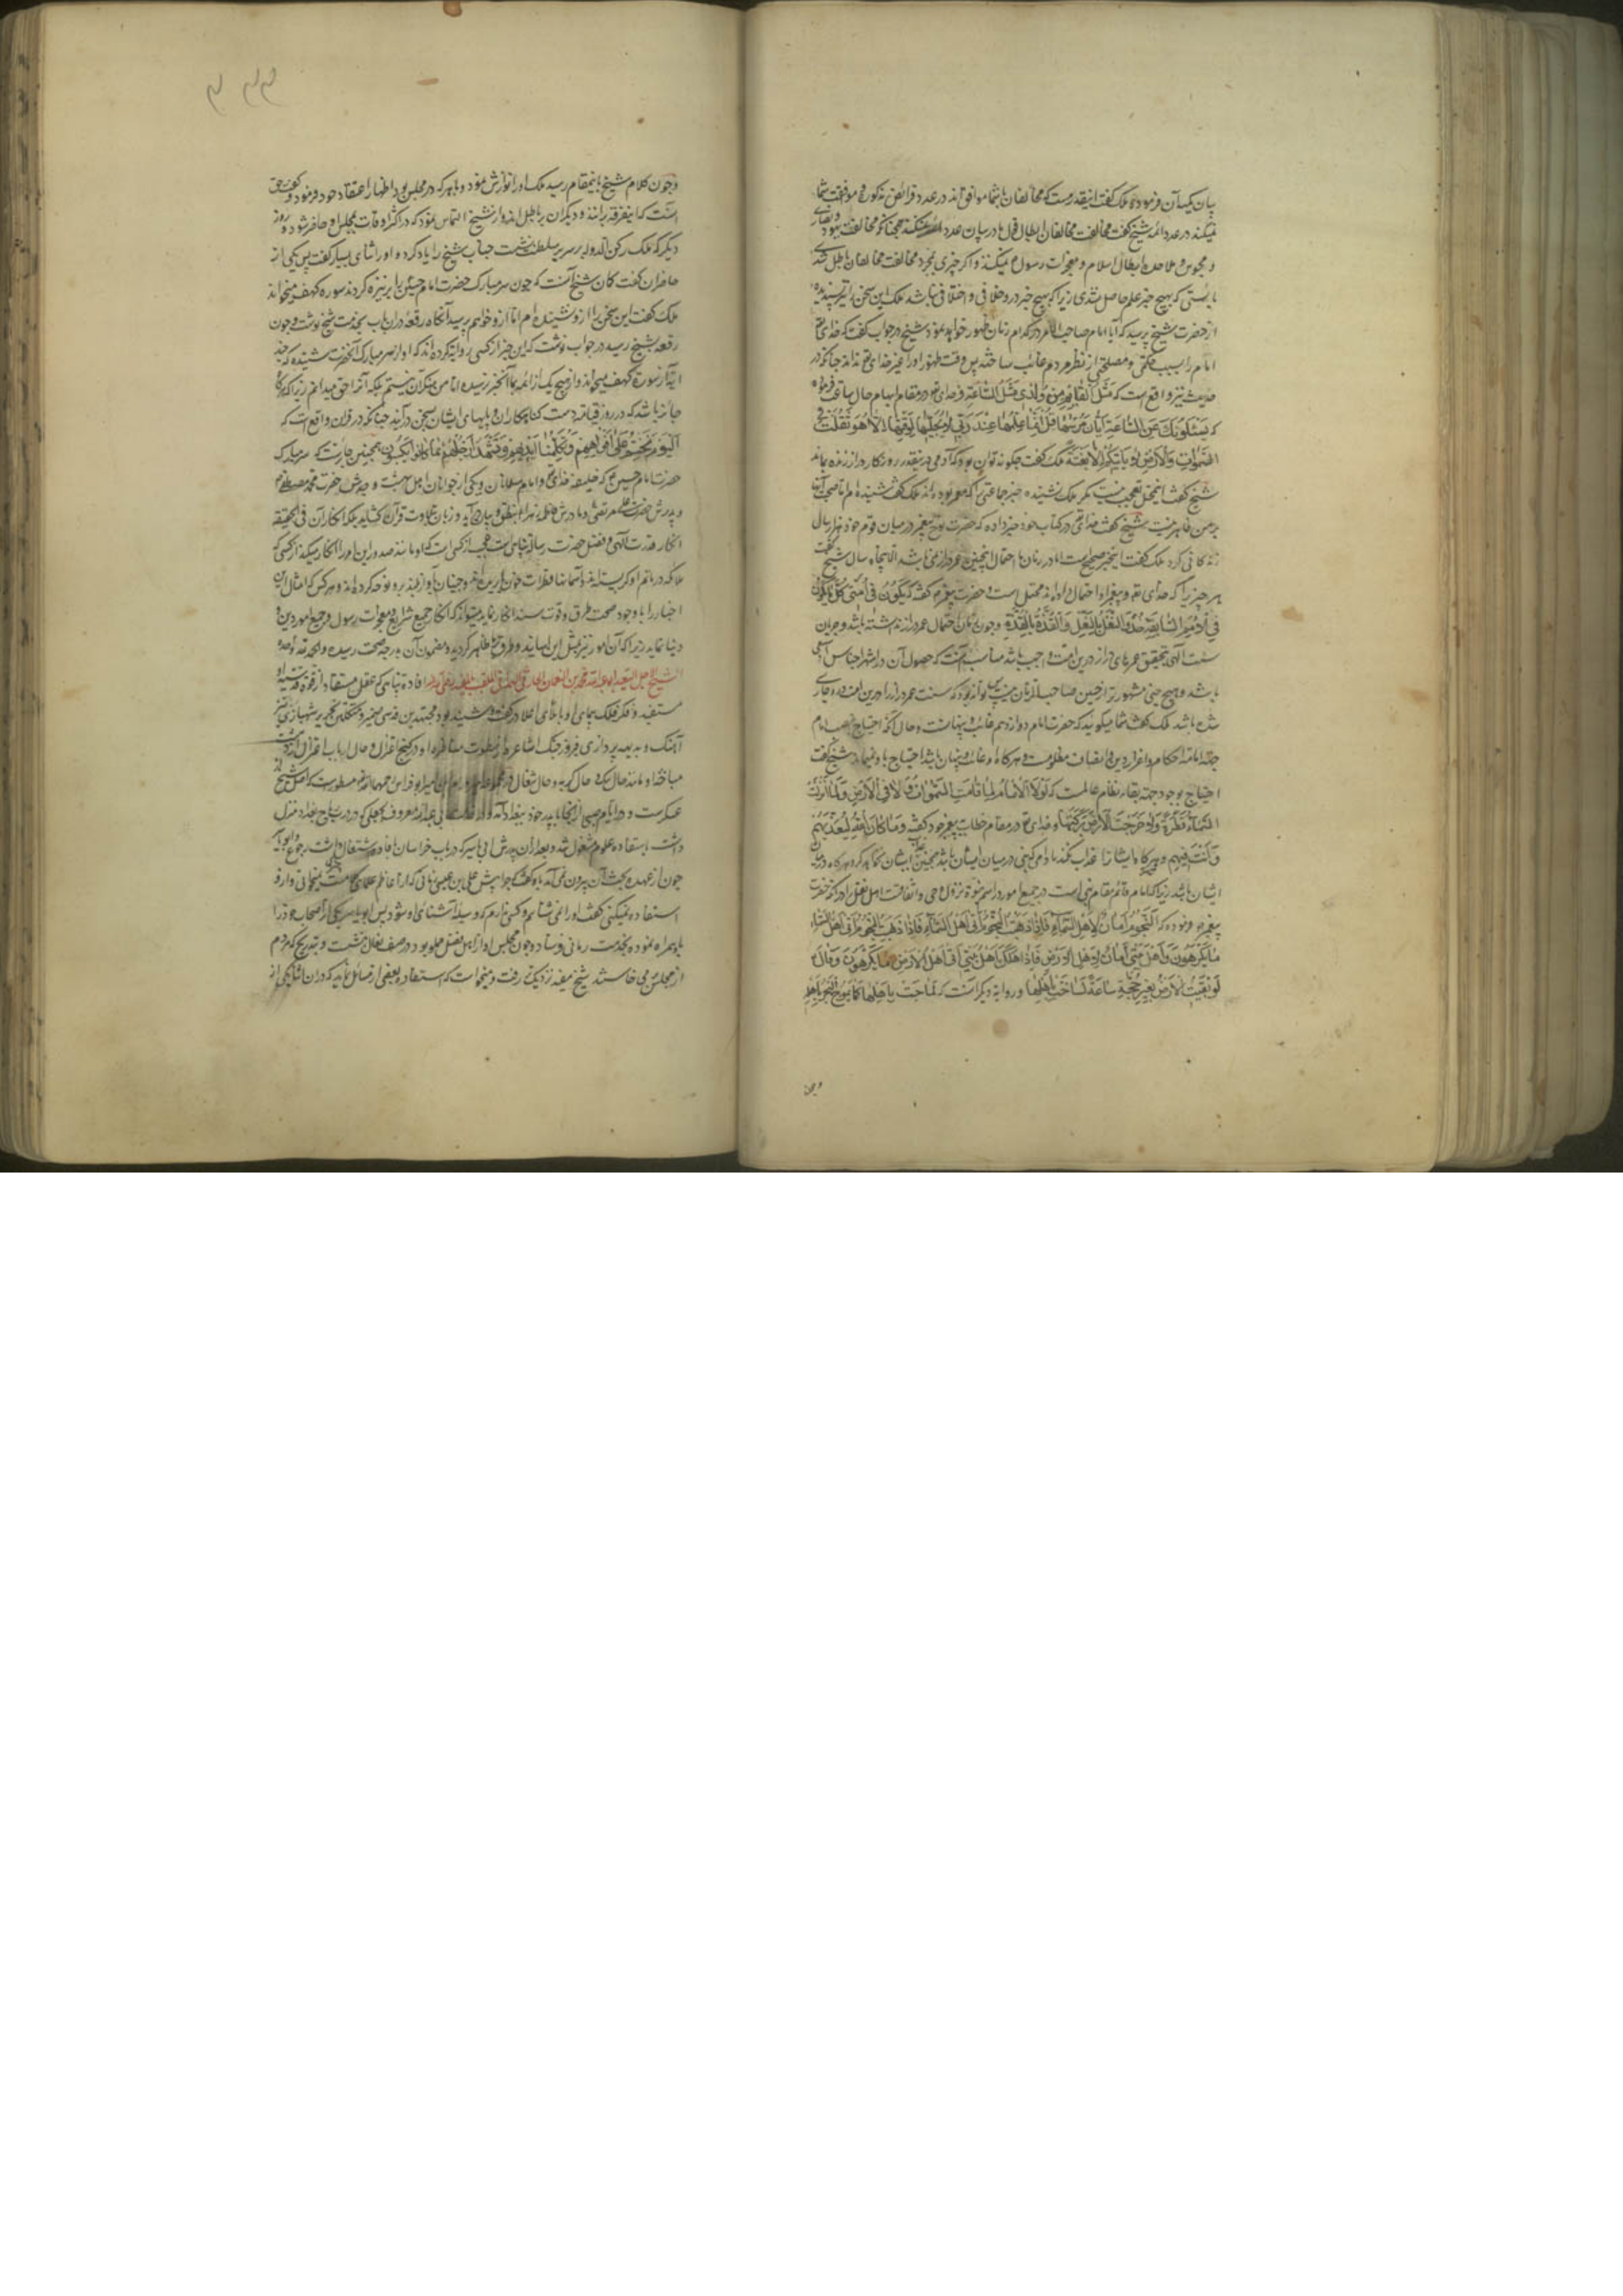 بیان یکیک آن فرموده ملک گفت اینقدر هست که مخالفان با شما موافق اند در عدد فرائض مذکوره و موافقت شما
نمیکنند در عدد ائمه شیخ گفت مخالفت مخالفان ابطال قول ما در بیان عدد ائمه نمیکند همچنانکه مخالفت یهود و نصاری
و مجوس و ملاحده ابطال اسلام و معجزات رسول نمیکند و اگر چیزی بمجرد مخالفت مخالفان باطل شدی
بایستی که بهیچ خبر علم حاصل نشدی زیرا که هیچ خبر درو خلافی و اختلافی نباشد ملک این سخن را نیز پسندیده
از حضرت شیخ پرسید که آیا امام صاحب الامر در کدام زمان ظهور خواهد نمود شیخ در جواب گفت که خدای تع
امام را بسبب حکمتی و مصلحتی از نظر مردم غائب ساخته پس وقت ظهور او را غیر خدای تع نداند چنانکه در
حدیث نیز واقع است که مَثَلُ القائِمِ مِن وُلدی مَثَلُ السّاعَةِ و خدای تع در مقام ابهام حال ساعت فرموده
که یَسْئَلُونَکَ عَنِ السّاعَةِ اَیّانَ مُرْسٰیهَا قُلْ اِنَّمَا عِلْمُهَا عِنْدَ رَبّی لَا یُجَلّیهَا لِوَقْتِهَا اِلَّا هُوَ ثَقُلَتْ فِی
السَّمٰوَاتِ وَالْاَرْضِ لَا یَأْتِیکُمْ اِلَّا بَغْتَةً ملک گفت چگونه توان بود که آدمی درینقدر روزکار دراز زنده بماند
شیخ گفت این محل تعجب نیست مگر ملک نشنیده خبر جماعتی را که معمر بوده اند ملک گفت شنیده ام اما صحت آنها
بر من ظاهر نیست شیخ گفت خدای تع در کتاب خود خبر داده که حضرت نوح پیغمبر در میان قوم خود هزار سال
زندگانی کرد ملک گفت این خبر صحیح است اما در زمان ما احتمال اینچنین عمر دراز نمی باشد الا پنجاه سال شیخ گفت
هر چیز را که خدای تع و پیغمبر او احتمال داده اند محتمل است و حضرت پیغمبر گفته که یَکُونُ فِی اُمَّتِی کُلُّ مَا یَکُونُ
فِی الْاُمَمِ السّابِقَةِ حَذْوَ النَّعْلِ بِالنَّعْلِ وَالْقُذَّةِ بِالْقُذَّةِ و چون زمان احتمال عمر دراز داشته باشد و جریان
سنت الهی بتحقیق عمرهای دراز درین امت واجب باشد مناسب آنست که حصول آن در اشهر اجناس آدمی
باشد و هیچ جنسی مشهورتر از جنس صاحب الزمان نیست پس تواند بود که سنت عمر دراز را درین امت درو جاری
شده باشد ملک گفت شما میگوئید که حضرت امام دوازدهم غائب و پنهانست و حال آنکه احتیاج بامام
جهة اقامة احکام و اعزاز دین و انصاف مظلومست و هر گاه او غائب و پنهان باشد احتیاج باو نمیماند شیخ گفت
احتیاج بوجود او جهة بقاء نظام عالمست که لَوْلَا الْاِمَامُ لَمَا قَامَتِ السَّمٰوَاتُ وَلَا فِی الْاَرْضِ وَلَمَا اَنْزَلَتِ
السَّمَاءُ قَطْرَةً وَلَا اَخْرَجَتِ الْاَرْضُ بَرَکَتَهَا و خدای تع در مقام خطاب پیغمبر خود گفته وَمَا کَانَ اللّٰهُ لِیُعَذِّبَهُمْ
وَاَنْتَ فِیهِمْ و هرگاه ایشانرا عذاب نکند مادام که نبی در میان ایشان باشد همچنین عذاب ایشان نخواهد کرد هرگاه امام در میان
ایشان باشد زیرا که امام قائم مقام نبی است در جمیع امور الا در اسم نبوة و نزول وحی و اتفاقست اهل نقل را در آنکه حضرت
پیغمبر فرموده که اَلنُّجُومُ اَمَانٌ لِاَهْلِ السَّمَاءِ فَاِذَا ذَهَبَتِ النُّجُومُ اَتٰی اَهْلَ السَّمَاءِ
مَا یَکْرَهُونَ وَاَهْلُ بَیْتِی اَمَانٌ لِاَهْلِ الْاَرْضِ فَاِذَا هَلَکَ اَهْلُ بَیْتِی اَتٰی اَهْلَ الْاَرْضِ مَا یَکْرَهُونَ وَقَالَ
لَوْ بَقِیَتِ الْاَرْضُ بِغَیْرِ حُجَّةٍ سَاعَةً لَسَاخَتْ بِاَهْلِهَا و روایة دیگر آنست که لَمَاجَتْ بِاَهْلِهَا کَمَا یَمُوجُ الْبَحْرُ بِاَهْلِهِ
و چون
۳۳۳
و چون کلام شیخ باینمقام رسید ملک او را نوازش نمود و با هر که در مجلس بود اظهار اعتقاد خود فرمود و گفت حق
آنست که اینفرقه برانند و دیگران بر باطل اند و از شیخ التماس نمود که در اکثر اوقات بمجلس او حاضر شود و روز
دیگر که ملک رکن الدوله بر سریر سلطنت نشست جناب شیخ را یاد کرده او را ثنای بسیار گفت پس یکی از
حاضران گفت گمان شیخ آنست که چون سر مبارک حضرت امام حسین را بر نیزه کردند سوره کهف میخواند
ملک گفت این سخن را ازو نشنیده ام اما ازو خواهم پرسید آنگاه رقعه دران باب بخدمت شیخ نوشت و چون
رقعه بشیخ رسید در جواب نوشت که این خبر از کسی روایة کرده اند که او از سر مبارک آنحضرت شنیده که چند
آیة از سورة کهف میخواند و از هیچ یک از ائمه بما آن خبر نرسیده اما من منکر آن نیستم بلکه آنرا حق میدانم زیرا که هرگاه
جائز باشد که در روز قیامة دست گناهکاران و پایهای ایشان بسخن درآیند چنانکه در قرآن واقع است که
اَلْیَوْمَ نَخْتِمُ عَلٰی اَفْوَاهِهِمْ وَتُکَلِّمُنَا اَیْدِیهِمْ وَتَشْهَدُ اَرْجُلُهُمْ بِمَا کَانُوا یَکْسِبُونَ همچنین جایز است که سر مبارک
حضرت امام حسین ع که خلیفه خدای تع و امام مسلمانان و یکی از جوانان اهل بهشت و جدش حضرت محمد مصطفی ص
و پدرش حضرت علی مرتضی و مادرش فاطمه زهرا بنطق و بیان درآید و زبان بتلاوت قرآن گشاید بلکه انکار آن فی الحقیقه
انکار قدرت الهی و فضل حضرت رسالة پناهی است و عجب از کسی است که او مانند صدور این امر را انکار میکند از کسی که
ملائکه در ماتم او گریسته اند و آسمانها قطرات خون باریده اند و جنیان بآواز بلند برو نوحه کرده اند و هر کس که امثال این
اخبار را با وجود صحت طرق و قوت سند انکار نماید میتواند که انکار جمیع شرایع و معجزات رسول و جمیع امور دین و
دنیا نماید زیرا که آن امور نیز بمثل این اسانید و طرق بر ما ظاهر گردیده و مضمون آن بدرجه صحت رسیده و الحمد لله وحده
الشیخ الاجل السعید ابو عبد الله محمد بن محمد بن النعمان الحارثی البغدادی الملقب بالمفید رفع الله درجته افادة پناهی که عقل مستفاد از قوة قدسیه او
مستفید و فکر فلک پیمای او با ملأ اعلا در گفت و شنید بود مجتهدین قدسی ضمیر و متکلمین نحریر شهباز تیز
آهنگ و بدیهه پردازی فیروز جنگ اشاعره از سطوت مناظره او در کنج اعتزال و حال ارباب اعتزال از
مباحثه او مانند حال
عکبرست و در ایام صبی از آنجا با پدر خود ببغداد آمده معروف بجعل که در درب ریاح بغداد منزل
داشت باستفاده علوم مشغول شد و بعد ازان بدرس ابی یاسر که در باب خراسان افاده اشتغال داشت رجوع نمود و ابو یاسر
چون از عهده بحث آن بیرون نمی آمد باو گفت که چرا پیش علی بن عیسی رمانی که از اعاظم علمای کلامست نمیخوانی و ازو
استفاده نمیکنی گفت او را نمی شناسم و کسی ندارم که وسیله آشنای او شود پس ابو یاسر یکی از اصحاب خود را
باو همراه نموده بخدمت رمانی فرستاد و چون مجلس او از اهل فضل مملو بود در صف نعال نشست و بتدریج که مردم
از مجلس می خاستند شیخ مفید نزدیکتر رفت و میخواست که استفاده بعضی از مسائل نماید که دران اثنا یکی از